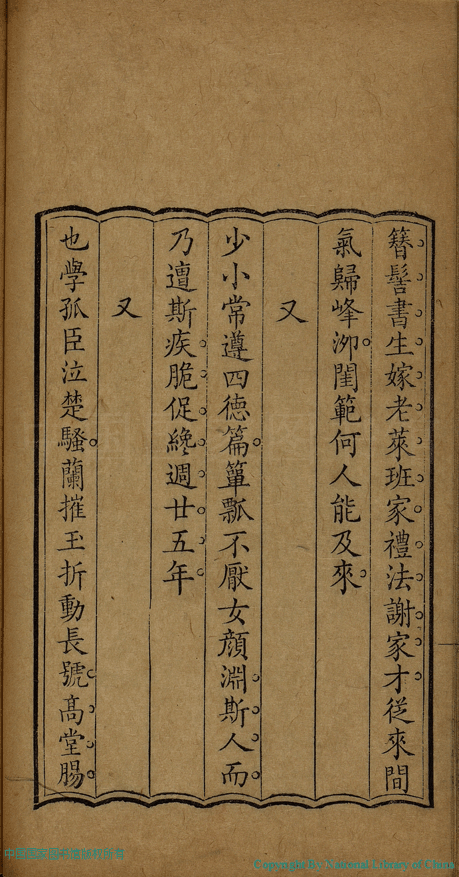 簪髻書生嫁老萊班家禮法謝家才從來間
氣歸峰泖閨範何人能及來
又
少小常遵四德篇簞瓢不厭女顏淵斯人而
乃遭斯疾脆促纔週廿五年
又
也學孤臣泣楚騷蘭摧玉折動長號高堂腸
Copyright By National Library of China